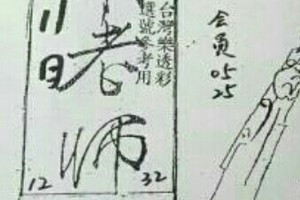 台灣樂透彩
選號參考用
11日
老師
12 32
会员
05
25